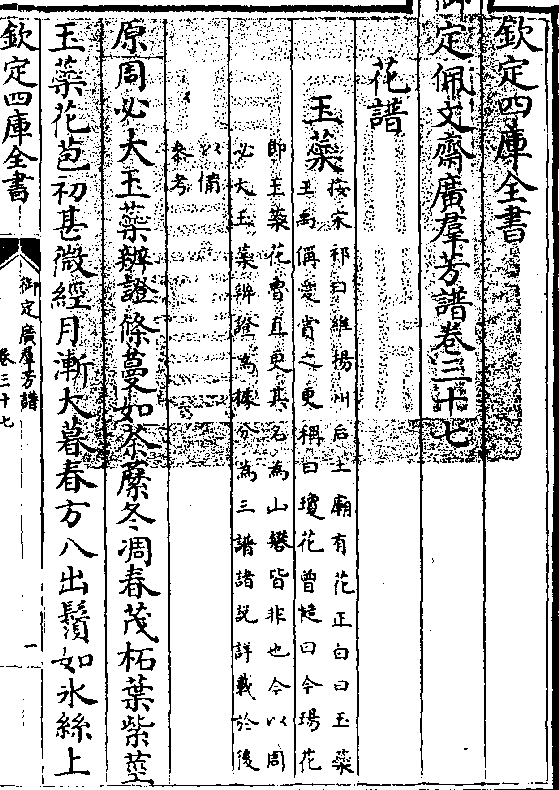 欽定四庫全書
御定佩文齋廣羣芳譜卷三十七
花譜
玉蘂 按宋祁曰維揚州后土廟有花正白曰玉蘂
王禹偁愛賞之更稱曰瓊花曾慥曰今瑒花
即玉蘂花曹直更其名為山礬皆非也今以周
必大玉蘂辨證為據分為三譜諸說詳載於後
以備
參考
原周必大玉蘂辨證條蔓如荼䕷冬凋春茂柘葉紫莖
玉蘂花苞初甚微經月漸大暮春方八出鬚如氷絲上
欽定四庫全書
御定廣羣芳譜
卷三十七
一